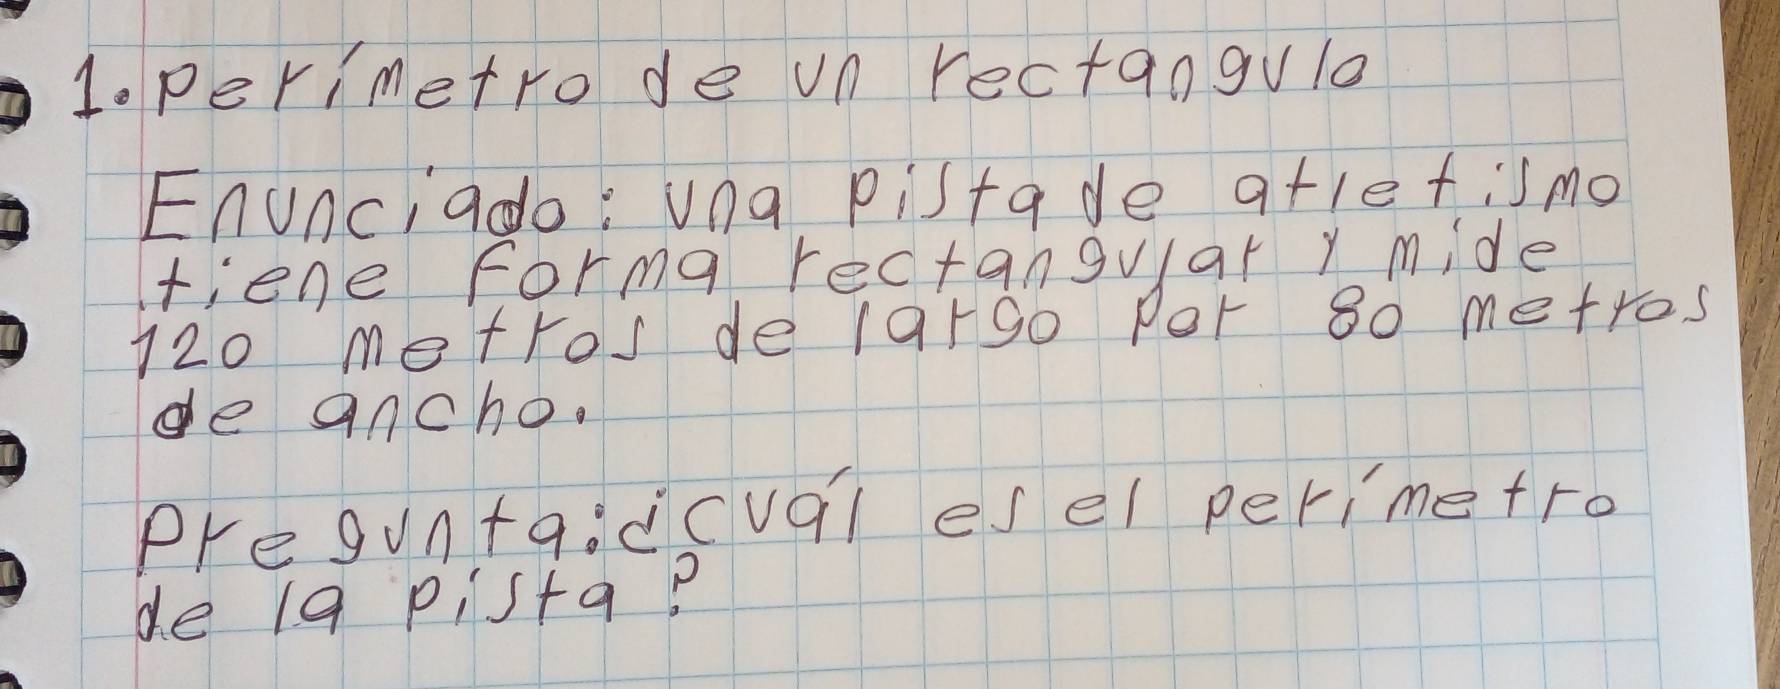 1. Perímetro de un rectangulo
Enunciado: una pista de atletismo
tiene forma rectangular y mide
120 metros de largo por 80 metros
de ancho.
Pregunta: ¿cuál es el perímetro
de la pista?